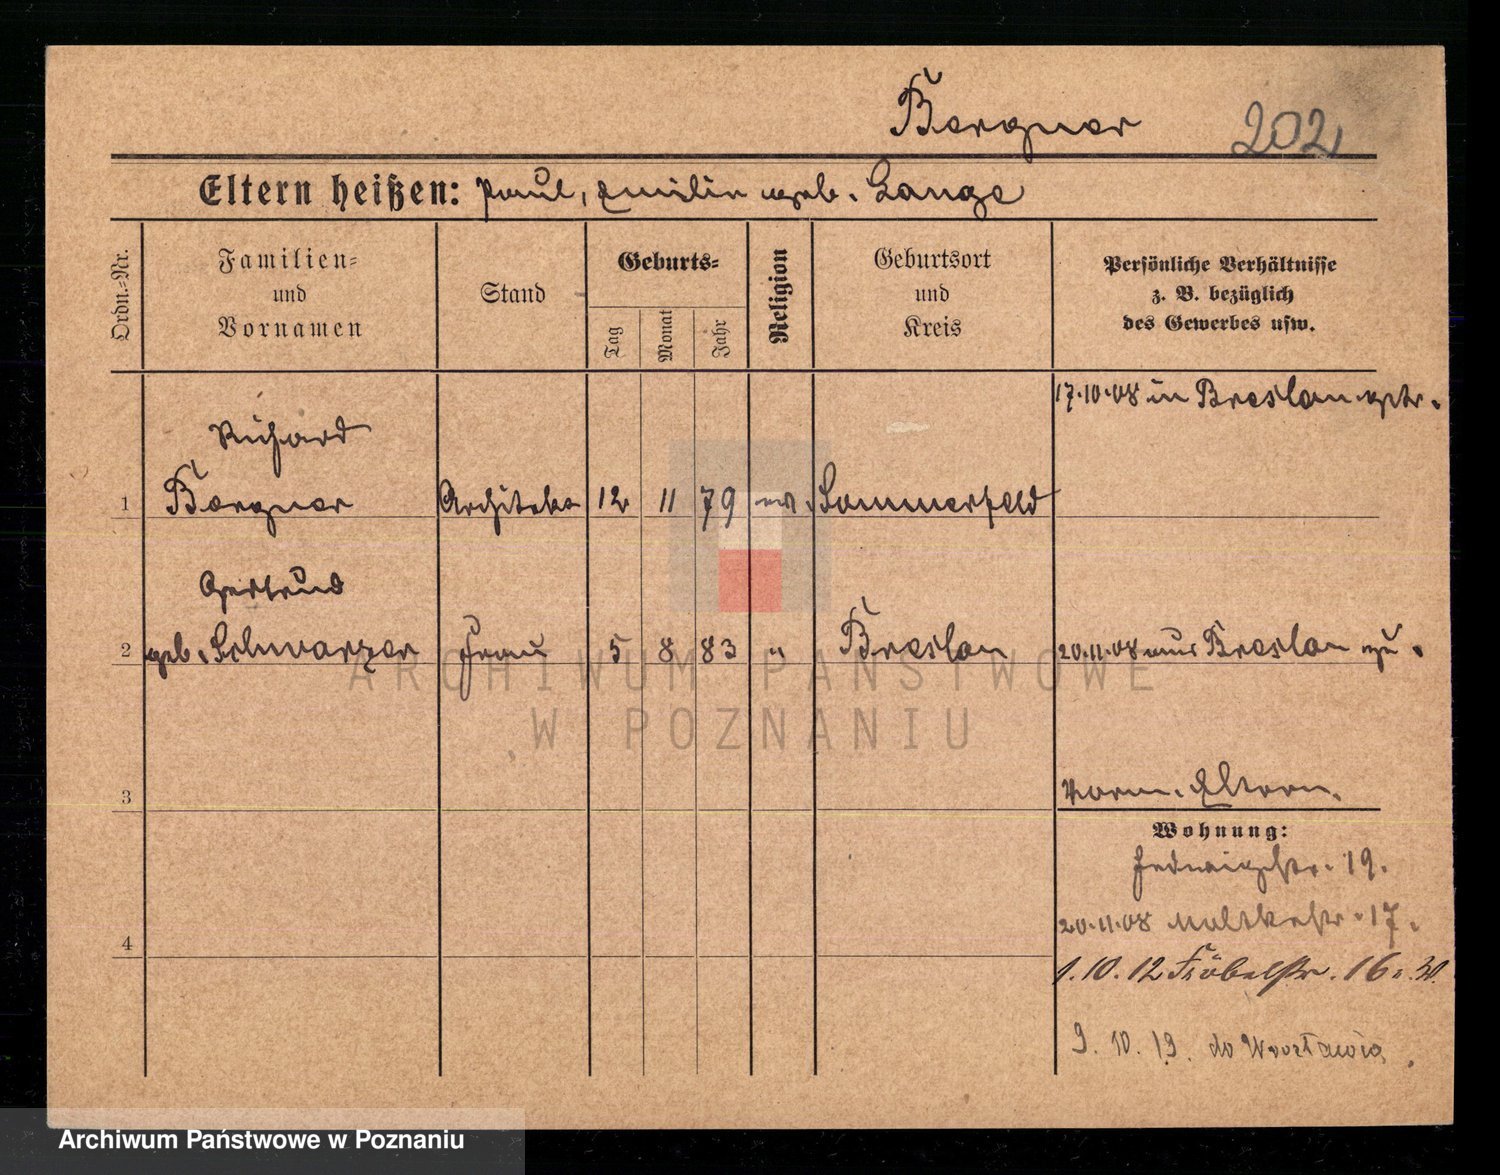 Bergner 202
Eltern heißen: Paul, Emilie geb. Lange
Ordn.-Nr.
Familien-
und
Vornamen
Stand
Geburts-
Tag
Monat
Jahr
Religion
Geburtsort
und
Kreis
Persönliche Verhältnisse
z. B. bezüglich
des Gewerbes usw.
17.10.08 in Breslau getr.
Richard
1 Bergner Architekt 12 11 79 ev. Sommerfeld
Gertrud
2 geb. Schwarzer Frau 5 8 83 " Breslau 20.11.08 aus Breslau zu.
3
Norm. Eltern.
Wohnung:
Hedwigstr. 19.
20.11.08 Moltkestr. 17.
4
1.10.12 Fröbelstr. 16
9. 10. 19. do Wrocławia.
ARCHIWUM PAŃSTWOWE
W POZNANIU
Archiwum Państwowe w Poznaniu